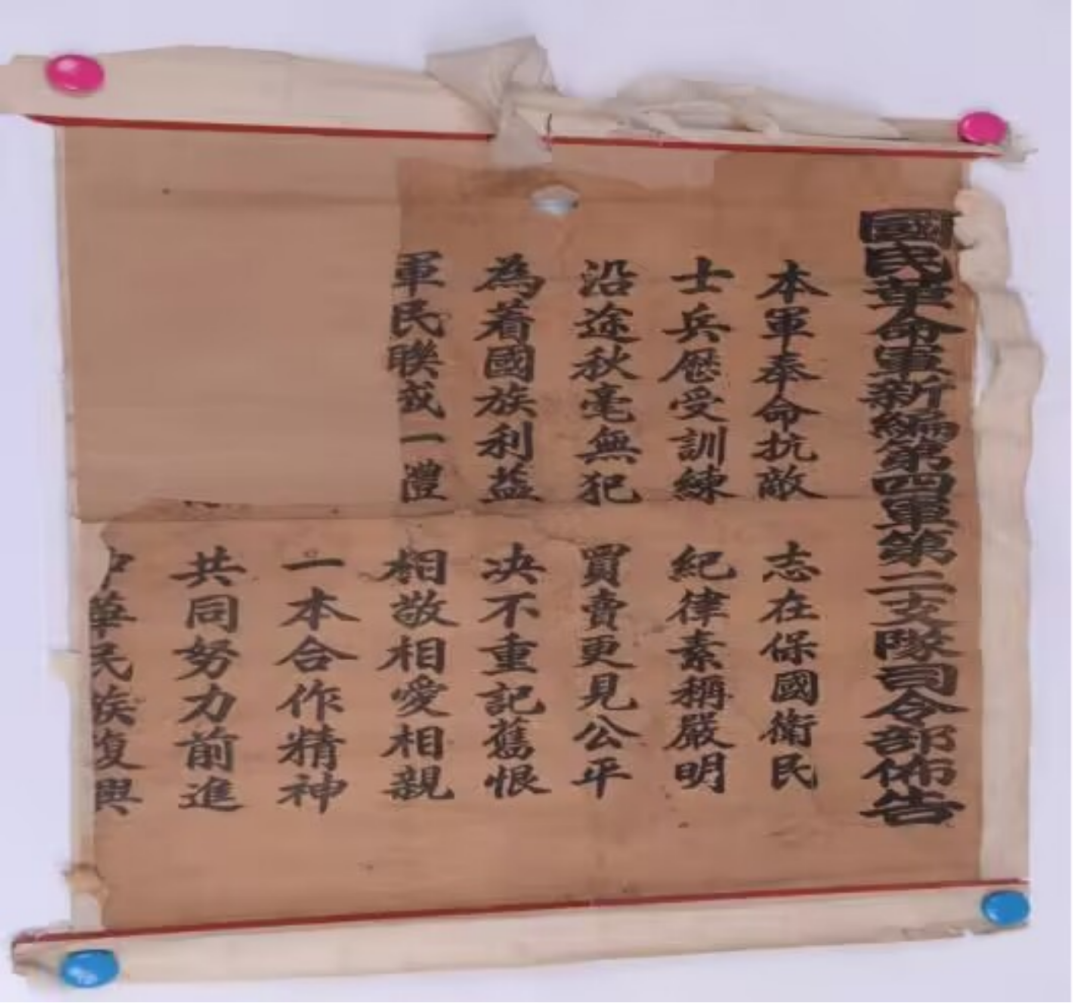 國民革命軍新編第四軍第二支隊司令部佈告
本軍奉命抗敵 志在保國衛民
士兵歷受訓練 紀律素稱嚴明
沿途秋毫無犯 買賣更見公平
為着國族利益 决不重記舊恨
軍民聯成一體 相敬相愛相親
一本合作精神
共同努力前進
中華民族復興